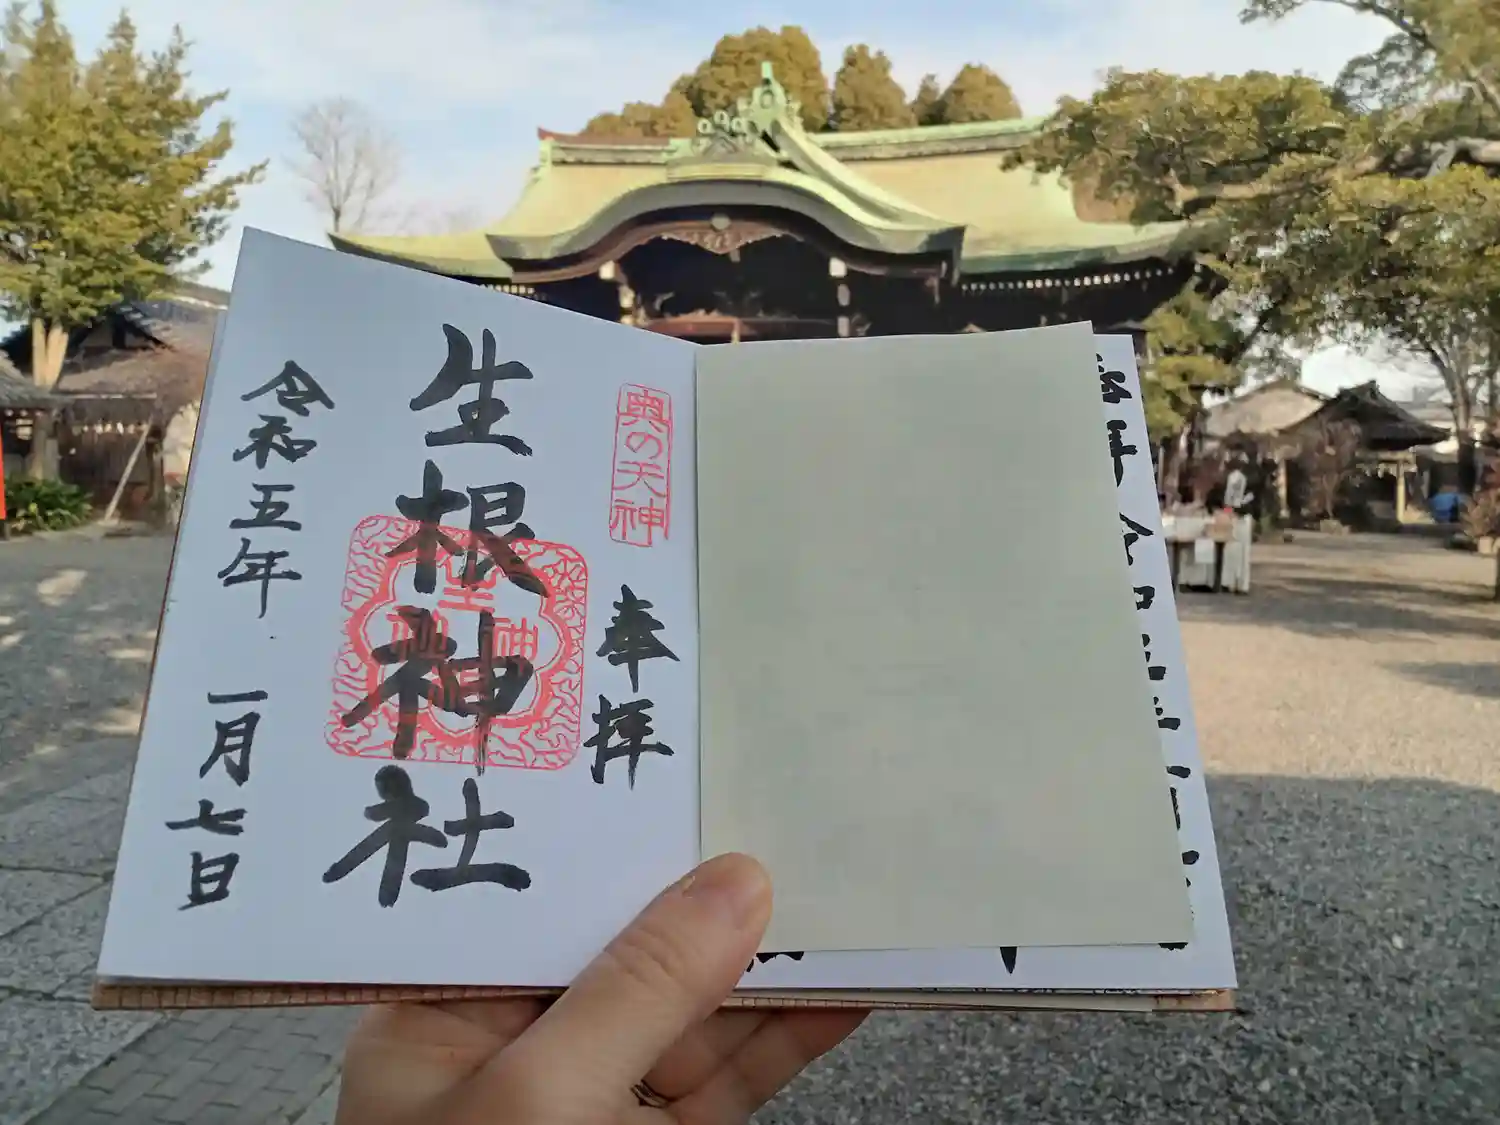 奥の天神
奉拝
生根神社
令和五年 一月七日